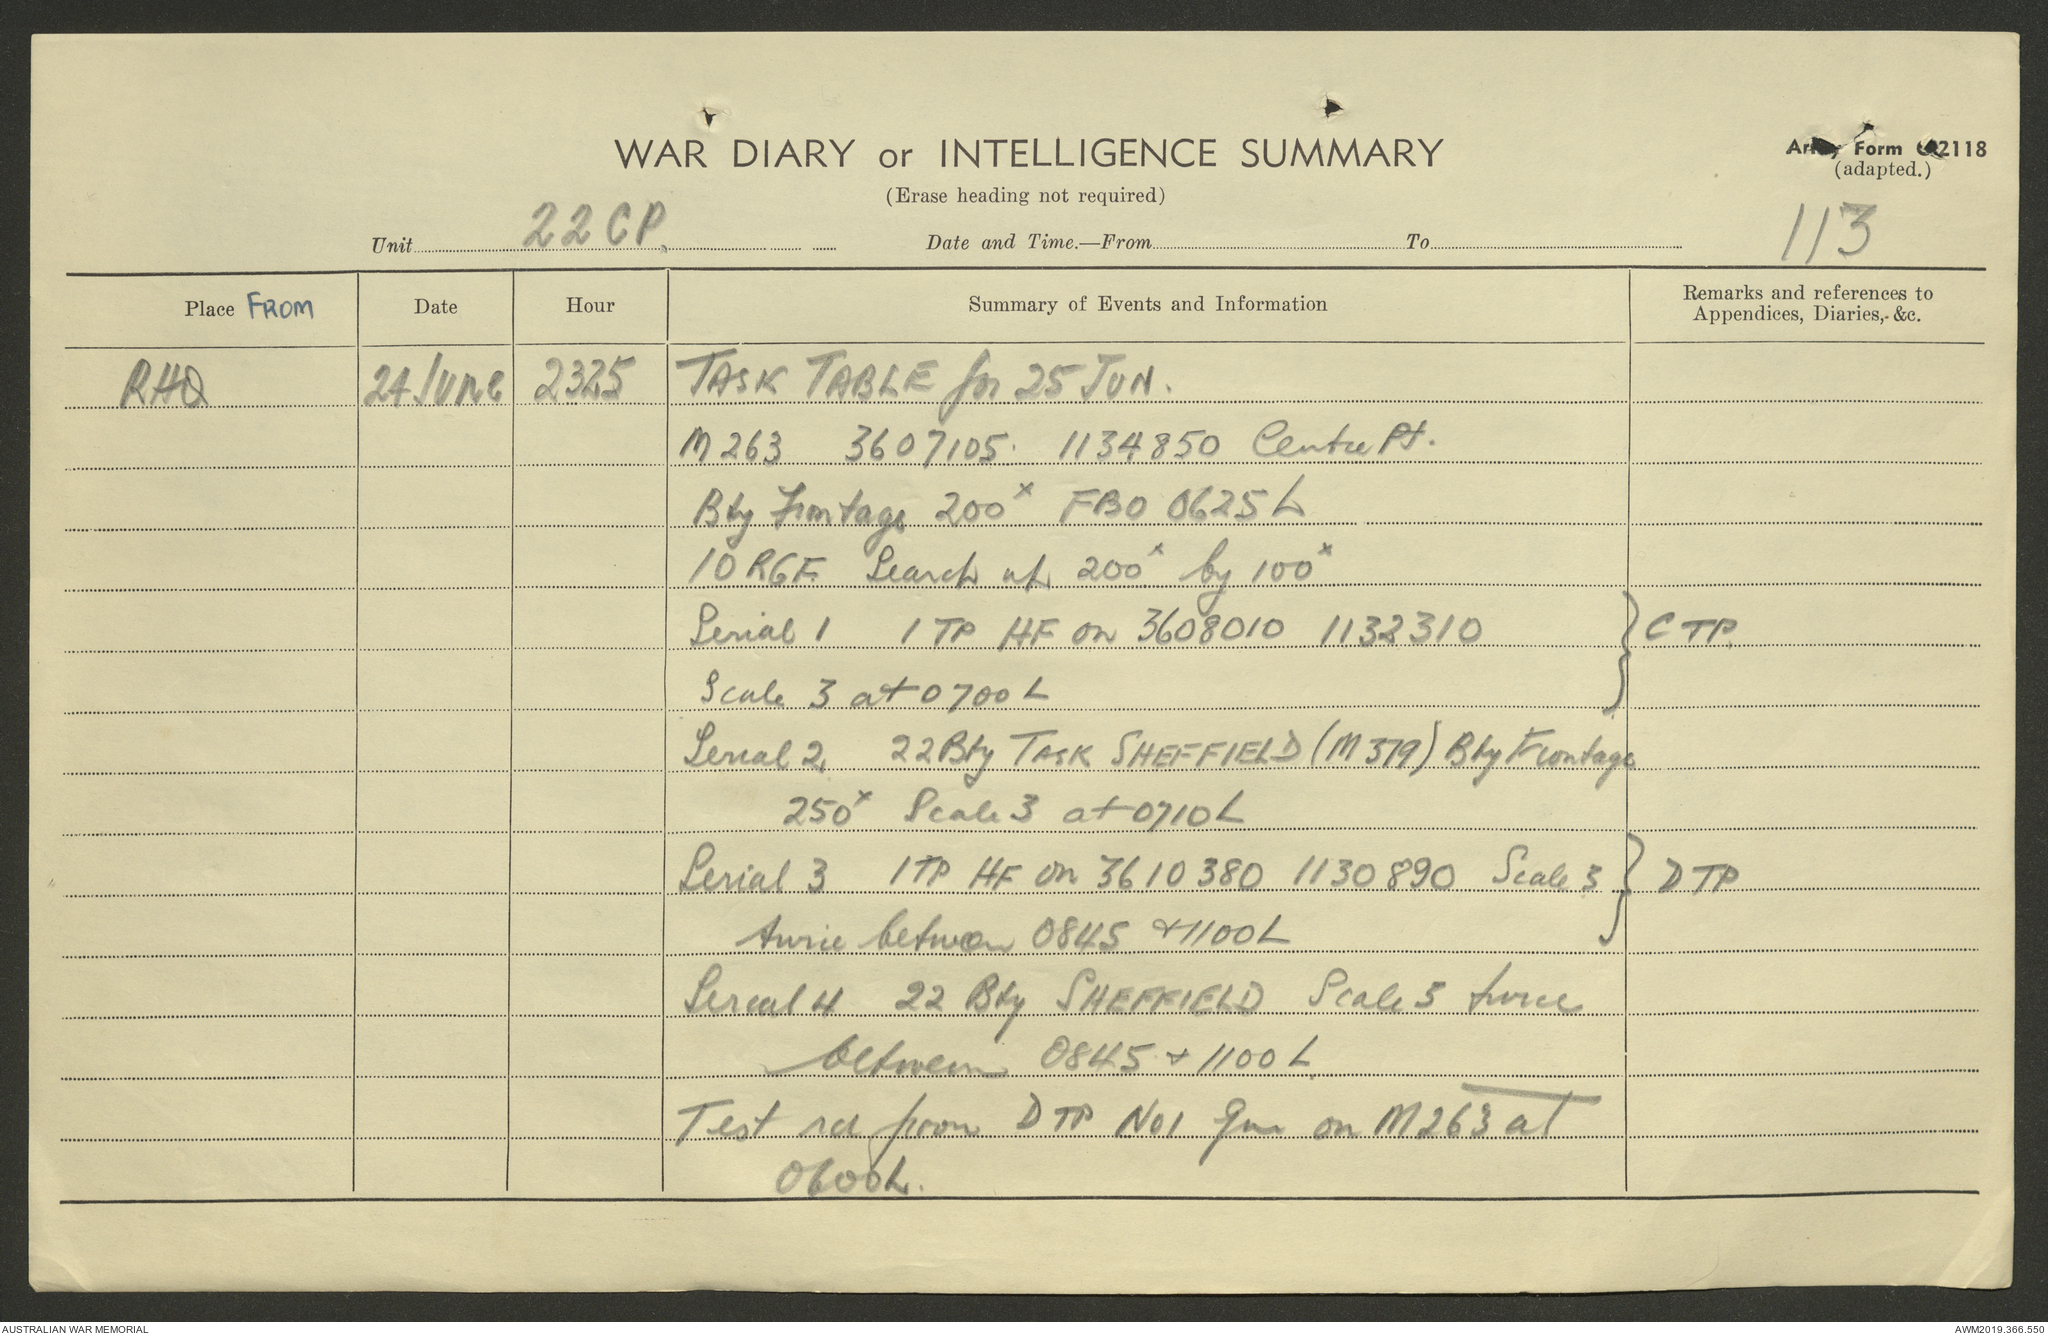 WAR DIARY or INTELLIGENCE SUMMARY
(Erase heading not required)
Army Form C2118
(adapted.)
113
Unit 22 CP. Date and Time.—From To
Place FROM Date Hour Summary of Events and Information Remarks and references to Appendices, Diaries, &c.
RHQ 24 June 2325 TASK TABLE for 25 JUN.
M 263 3607105 1134850 Centre Pt.
Bty Frontage 200x FBO 0625 L
10 RGF Search up 200x by 100x
Serial 1 1 TP HF on 3608010 1132310 } C TP.
Scale 3 at 0700 L
Serial 2. 22 Bty TASK SHEFFIELD (M 379) Bty Frontage
250x Scale 3 at 0710 L
Serial 3 1 TP HF on 3610380 1130890 Scale 3 } D TP
twice between 0845 & 1100 L
Serial 4 22 Bty SHEFFIELD Scale 5 twice
between 0845 & 1100 L
Test rd from D TP No1 Gun on M 263 at
0600 L.
AUSTRALIAN WAR MEMORIAL
AWM2019.366.550